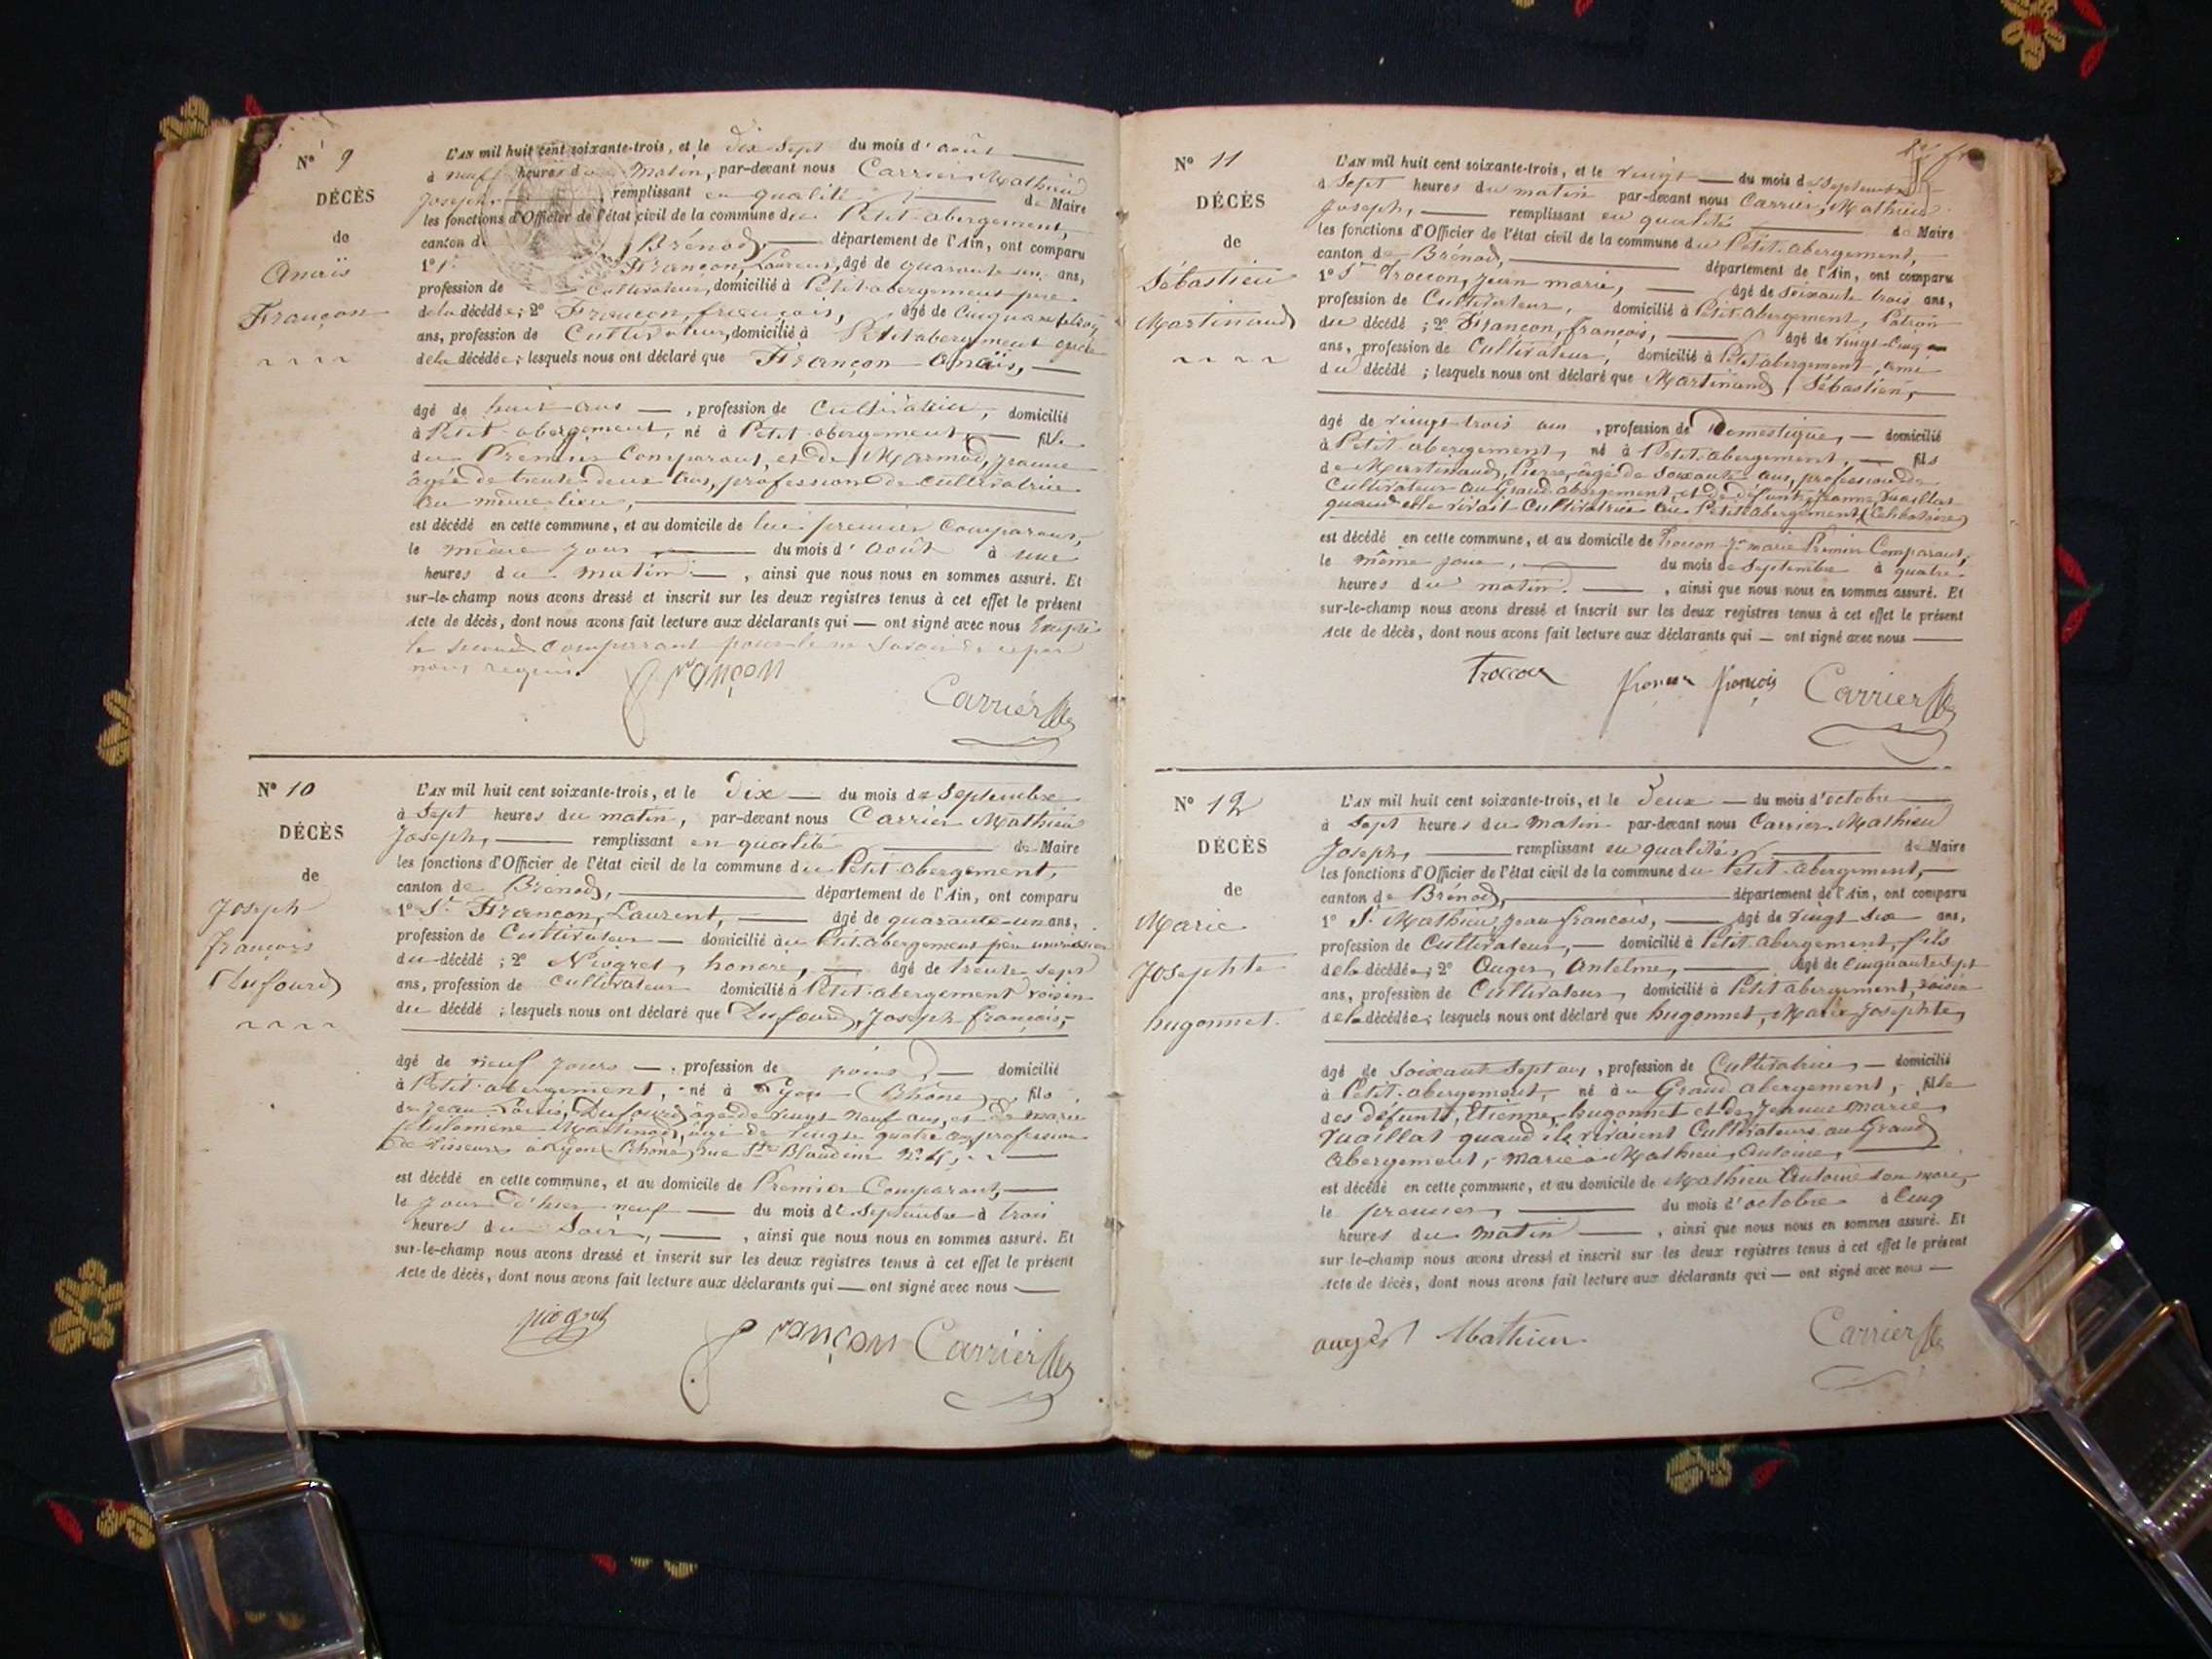 N° 9
DÉCÈS
de
Anaïs
Françon
L'AN mil huit cent soixante-trois, et le dix sept du mois d'août
à neuf heures du matin, par-devant nous Carrier Mathieu
Joseph, remplissant en qualité de Maire
les fonctions d'Officier de l'état civil de la commune du Petit-abergement,
canton de Brénod, département de l'Ain, ont comparu
1° Sr Françon, Laurent, âgé de quarante un ans,
profession de Cultivateur, domicilié à Petit abergement père
de la décédée; 2° Françon, françois, âgé de
ans, profession de Cultivateur, domicilié à Petit abergement
de la décédée; lesquels nous ont déclaré que Françon Anaïs,
âgé de huit ans, profession de Cultivatrice, domicilié
à Petit-abergement, né à Petit-abergement, fille
du Premier Comparant, et de Marmod, Jeanne
âgée de trente deux ans, profession de cultivatrice
au même lieu,
est décédé en cette commune, et au domicile de lui premier Comparant,
le même jour du mois d'août à une
heures du matin, ainsi que nous nous en sommes assuré. Et
sur-le-champ nous avons dressé et inscrit sur les deux registres tenus à cet effet le présent
Acte de décès, dont nous avons fait lecture aux déclarants qui ont signé avec nous Excepté
le second comparant pour ne savoir de ce par
nous requis.
Françon
Carrier
N° 10
DÉCÈS
de
Joseph
françois
Dufourd
L'AN mil huit cent soixante-trois, et le Dix du mois de Septembre
à Sept heures du matin, par-devant nous Carrier Mathieu
Joseph, remplissant en qualité de Maire
les fonctions d'Officier de l'état civil de la commune du Petit-abergement,
canton de Brénod, département de l'Ain, ont comparu
1° Sr Françon, Laurent, âgé de quarante-un ans,
profession de Cultivateur domicilié au Petit-abergement père nourricier
du décédé; 2° Niogret, honoré, âgé de trente sept
ans, profession de Cultivateur domicilié à Petit-abergement voisin
du décédé; lesquels nous ont déclaré que Dufourd, Joseph françois,
âgé de neuf jours, profession de domicilié
à Petit-abergement, né à Lyon (Rhône), fils
de Jean Louis, Dufourd âgé de vingt neuf ans, et de marie
philomène âgé de vingt quatre ans profession
de Tisseurs à Lyon (Rhône) rue Ste Blandine N° 4,
est décédé en cette commune, et au domicile de Premier Comparant,
le Jour d'hier neuf du mois de Septembre à trois
heures du Soir, ainsi que nous nous en sommes assuré. Et
sur-le-champ nous avons dressé et inscrit sur les deux registres tenus à cet effet le présent
Acte de décès, dont nous avons fait lecture aux déclarants qui ont signé avec nous
niogret
Françon Carrier
N° 11
DÉCÈS
de
Sébastien
Martinand
L'AN mil huit cent soixante-trois, et le vingt du mois de Septembre
à Sept heures du matin par-devant nous Carrier, Mathieu
Joseph, remplissant en qualité de Maire
les fonctions d'Officier de l'état civil de la commune du Petit-abergement,
canton de Brénod, département de l'Ain, ont comparu
1° Sr Troccon, Jean marie, âgé de Soixante trois ans,
profession de Cultivateur, domicilié à Petit-abergement, Patron
du décédé; 2° Françon, françois, âgé de vingt-cinq
ans, profession de Cultivateur, domicilié à Petit abergement, ami
du décédé; lesquels nous ont déclaré que Martinand, Sébastien,
âgé de vingt-trois ans, profession de Domestique, domicilié
à Petit abergement, né à Petit abergement, fils
de Martinand, Pierre, âgé de Soixante ans, profession de
Cultivateur au Grand-abergement, et de défunte Jeanne Vuaillat
quand elle vivait Cultivatrice au Petit abergement (Célibataire)
est décédé en cette commune, et au domicile de Troccon Jn marie Premier Comparant,
le même jour, du mois de Septembre à quatre
heures du matin, ainsi que nous nous en sommes assuré. Et
sur-le-champ nous avons dressé et inscrit sur les deux registres tenus à cet effet le présent
Acte de décès, dont nous avons fait lecture aux déclarants qui ont signé avec nous
Troccon françon françois Carrier
N° 12
DÉCÈS
de
Marie
Josephte
hugonnet
L'AN mil huit cent soixante-trois, et le Deux du mois d'octobre
à Sept heures du Matin par-devant nous Carrier Mathieu
Joseph, remplissant en qualité, de Maire
les fonctions d'Officier de l'état civil de la commune du Petit-abergement,
canton de Brénod, département de l'Ain, ont comparu
1° Sr Mathieu, Jean françois, âgé de vingt six ans,
profession de Cultivateur, domicilié à Petit abergement, fils
de la décédée; 2° Auger, Antelme, âgé de Cinquante Sept
ans, profession de Cultivateur, domicilié à Petit abergement, voisin
de la décédée; lesquels nous ont déclaré que hugonnet, Marie Josephte,
âgé de Soixante Sept ans, profession de Cultivatrice, domicilié
à Petit-abergement, né au Grand abergement, fille
des défunts, Etienne, hugonnet et de Jeanne marie
Vuaillat quand ils vivaient Cultivateurs au Grand
Abergement, mariée à Mathieu, Antoine,
est décédé en cette commune, et au domicile de Mathieu Antoine son mari,
le premier, du mois d'octobre à Cinq
heures du Matin, ainsi que nous nous en sommes assuré. Et
sur le-champ nous avons dressé et inscrit sur les deux registres tenus à cet effet le présent
Acte de décès, dont nous avons fait lecture aux déclarants qui ont signé avec nous
auger Mathieu Carrier